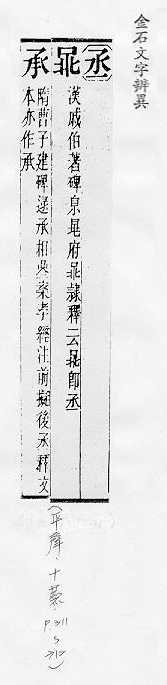 金石文字辨異
丞
漢戚伯著碑府隸釋云即丞
承
隋曹子建碑承相案孝經注前疑後承釋文
本亦作承
(平聲・十蒸・
P.311
312)